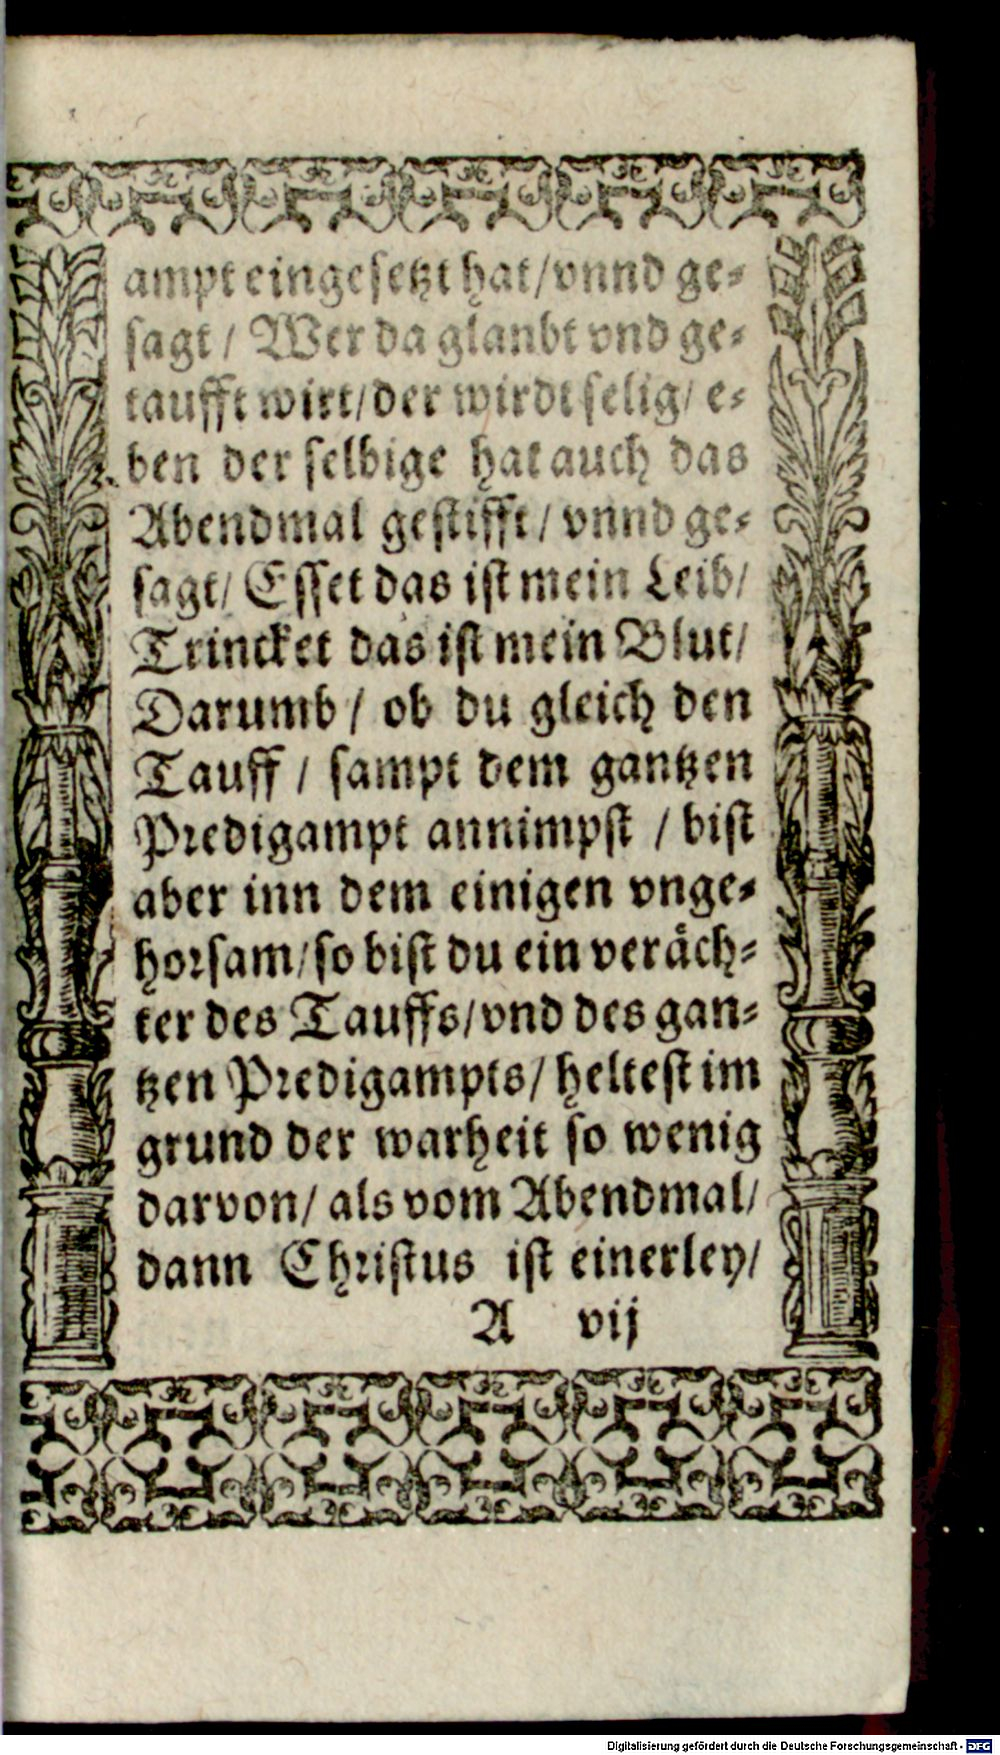 ampt eingesetzt hat/vnnd ge-
sagt/ Wer da glaubt vnd ge-
taufft wirt/der wirdt selig/ e-
ben der selbige hat auch das
Abendmal gestifft/ vnnd ge-
sagt/ Esset das ist mein Leib/
Trincket das ist mein Blut/
Darumb/ ob du gleich den
Tauff/ sampt dem gantzen
Predigampt annimpst / bist
aber inn dem einigen vnge-
horsam/so bist du ein veräch-
ter des Tauffs/vnd des gan-
tzen Predigampts/ heltest im
grund der warheit so wenig
darvon/ als vom Abendmal/
dann Christus ist einerley/
A vij
Digitalisierung gefördert durch die Deutsche Forschungsgemeinschaft - DFG